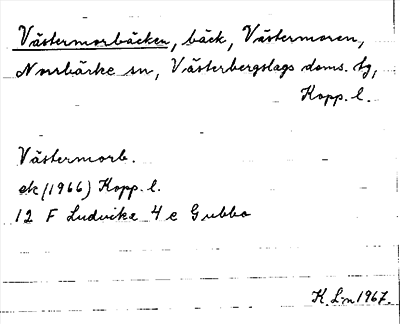 Västermorbäcken, bäck, Västermoren,
Norrbärke sn, Västerbergslags doms. tg,
Kopp. l.
Västermorb.
ek (1966) Kopp. l.
12 F Ludvika 4 e Gubbo
K. Lm 1967.